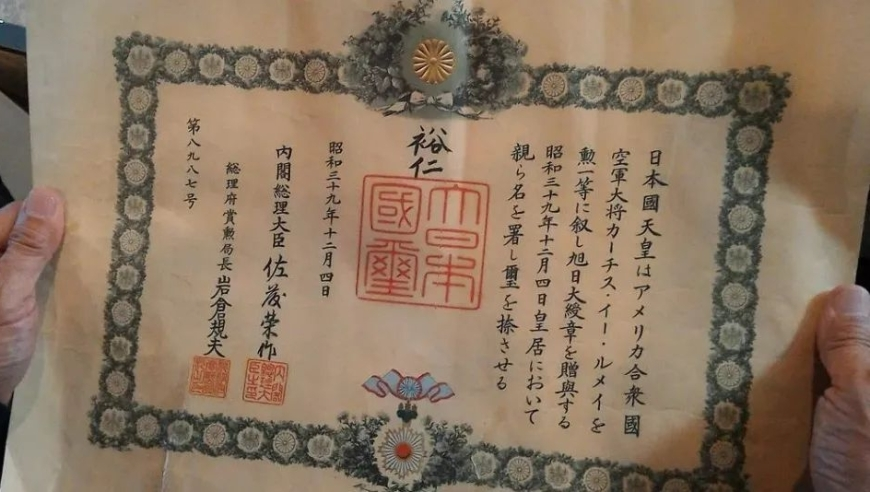 日本國天皇はアメリカ合衆國
空軍大将カーチス・イー・ルメイを
勲一等に叙し旭日大綬章を贈與する
昭和三十九年十二月四日皇居において
親ら名を署し璽を捺させる
裕仁
大日本國璽
昭和三十九年十二月四日
内閣総理大臣 佐藤榮作
総理府賞勲局長 岩倉規夫
第八九八七号